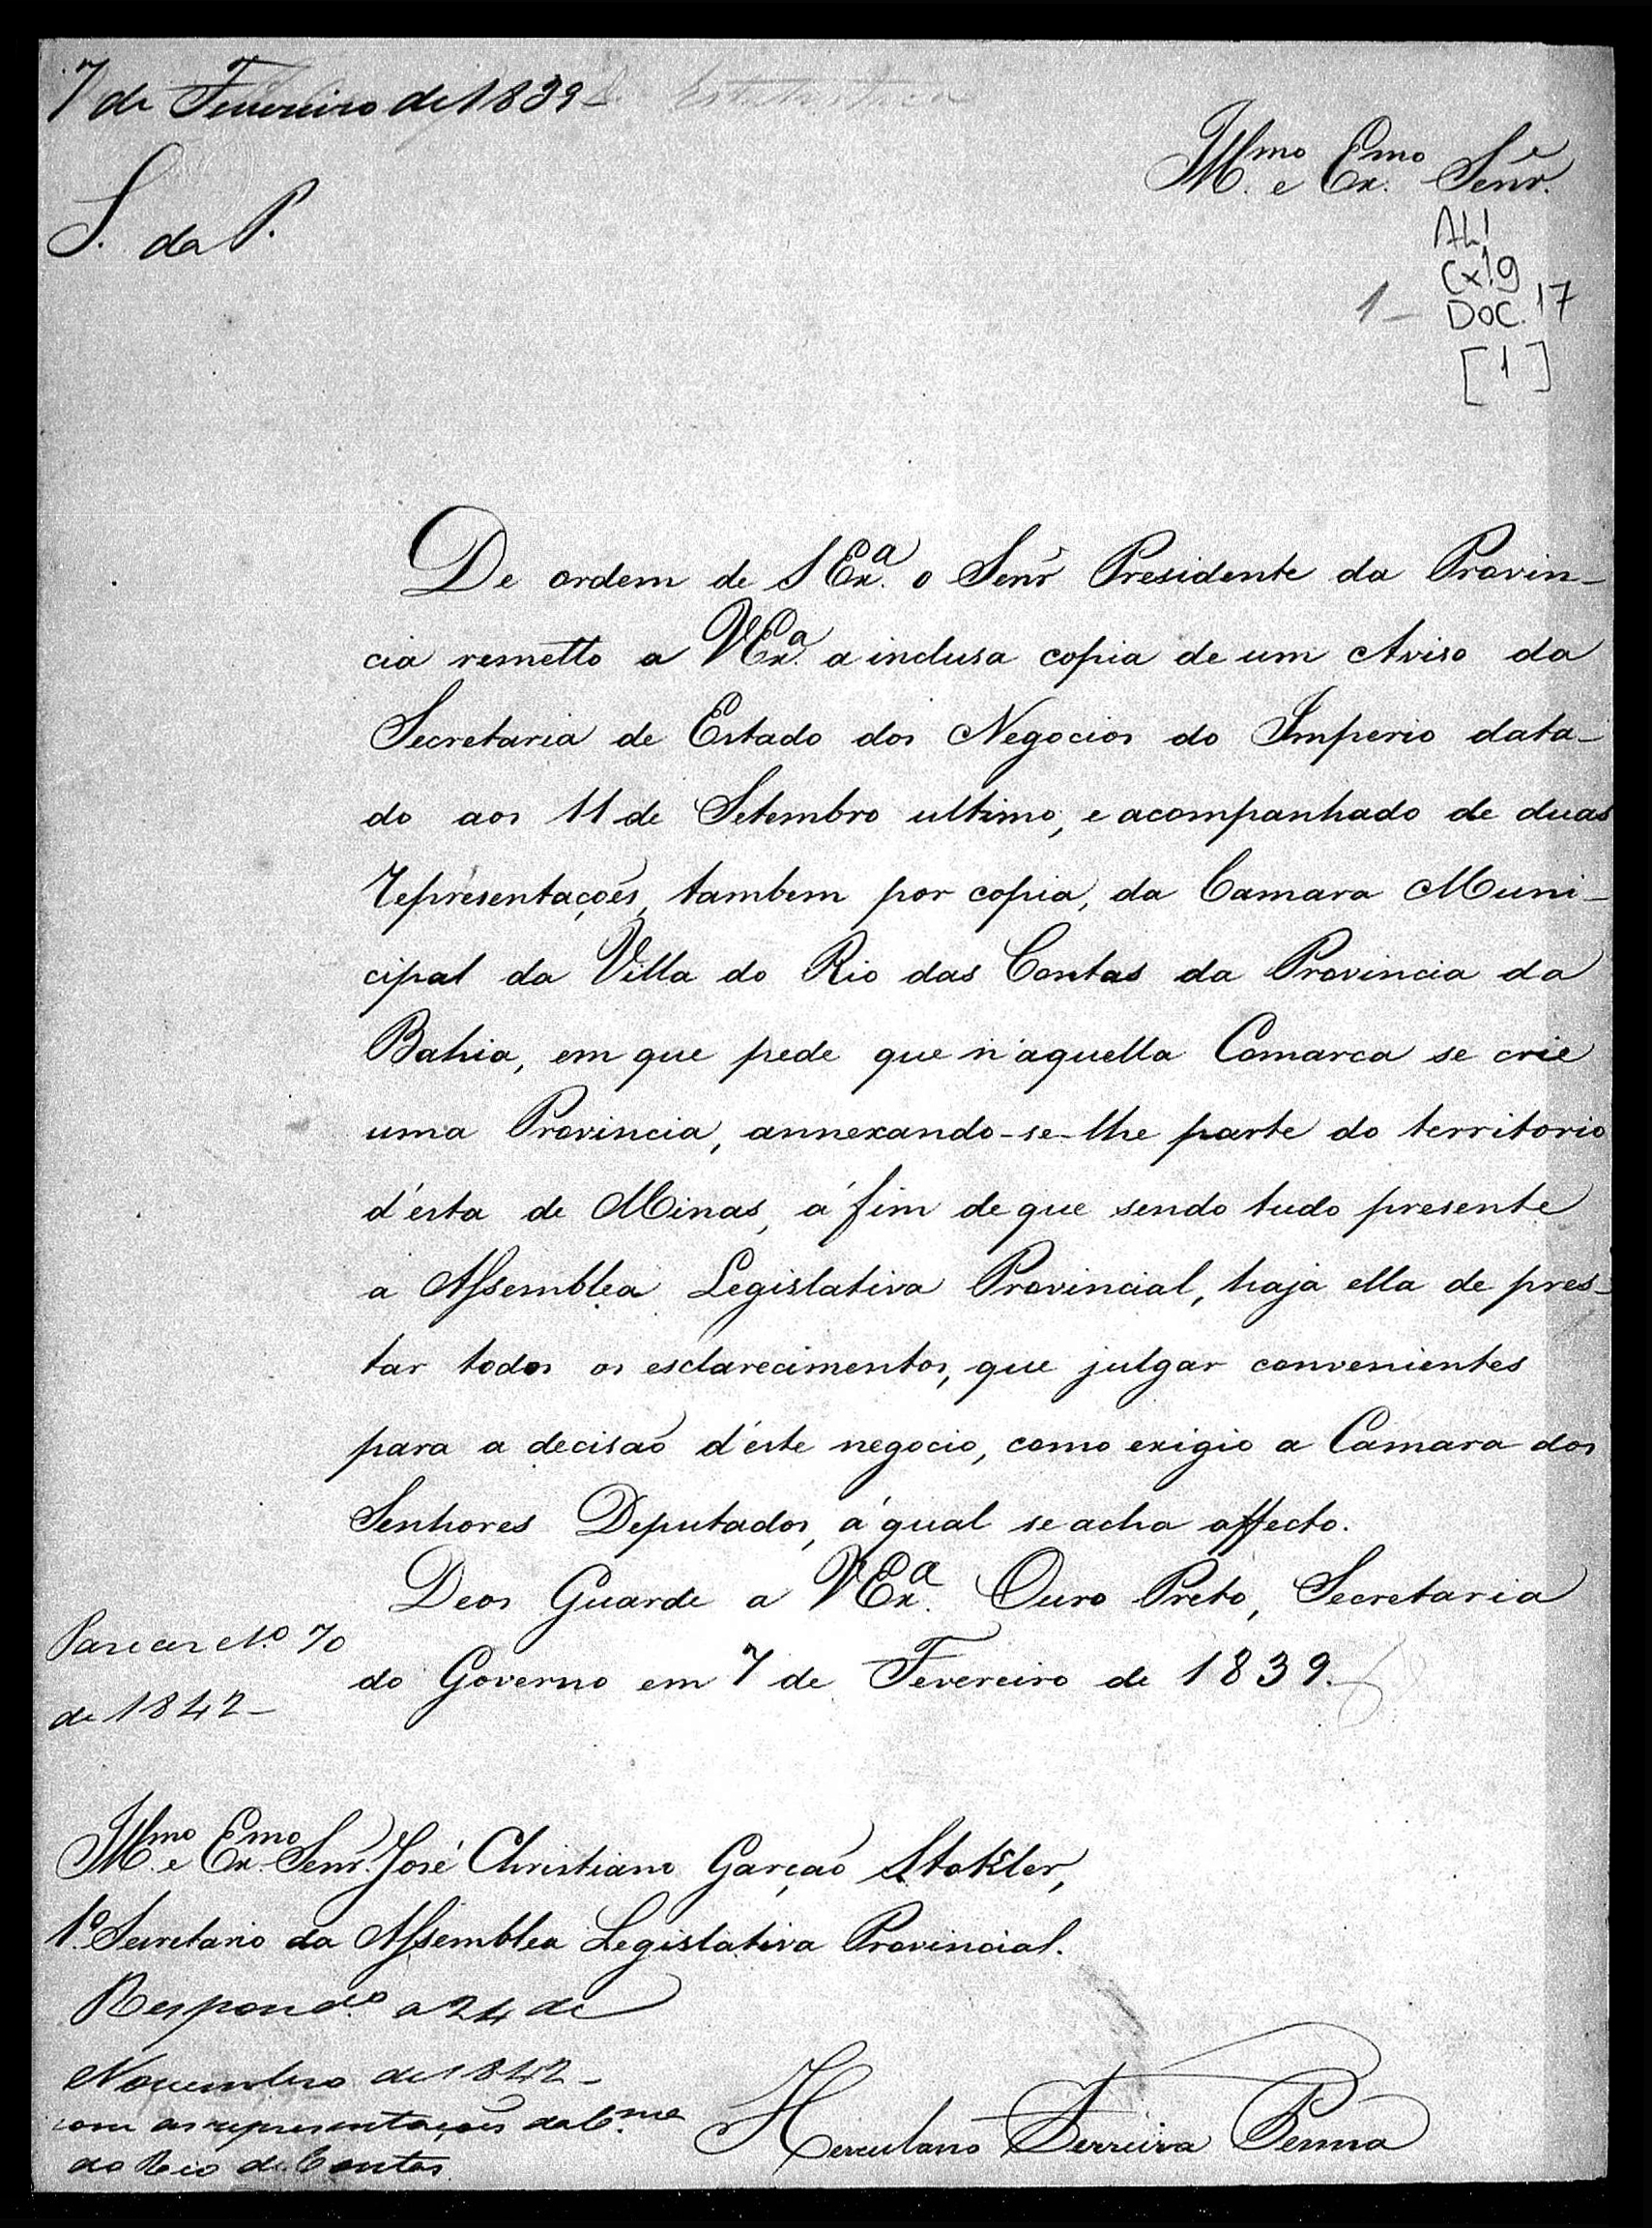 7 de Fevereiro de 1839
Estatistica
Illmo. e Exmo. Senr.
S. da P.
AL1
Cx19
1 - DOC. 17
[1]
De ordem de S Exa. o Senr Presidente da Provin-
cia remetto a VExa. a inclusa copia de um Aviso da
Secretaria de Estado dos Negocios do Imperio data-
do aos 11 de Setembro ultimo, e acompanhado de duas
representaçoẽs, tambem por copia, da Camara Muni-
cipal da Villa do Rio das Contas da Provincia da
Bahia, em que pede que n'aquella Comarca se crie
uma Provincia, annexando-se-lhe parte do territorio
d'esta de Minas, á fim de que sendo tudo presente
a Assemblea Legislativa Provincial, haja ella de pres-
tar todos os esclarecimentos, que julgar convenientes
para a decisaõ d'este negocio, como exigio a Camara dos
Senhores Deputados, á qual se acha affecto.
Deos Guarde a VExa. Ouro Preto, Secretaria
do Governo em 7 de Fevereiro de 1839.
Parecer No. 70
de 1842-
Illmo. e Exmo. Senr. José Christiano Garçaõ Stokler,
1º. Secretario da Assemblea Legislativa Provincial.
Respondo. a 24 de
Novembro de 1842-
com as representaçoẽs da Cma.
do Rio de Contas
Herculano Ferreira Penna